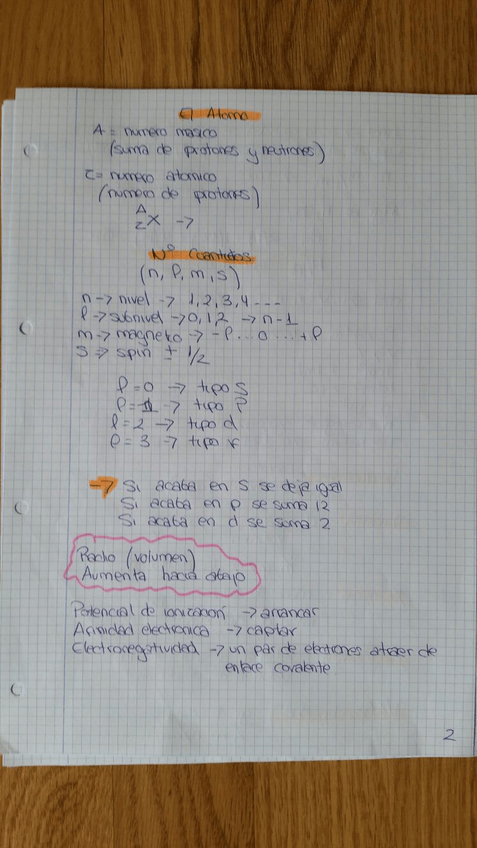 El Atomo
A = numero masico
(suma de protones y neutrones)
Z = numero atomico
(numero de protones)
A
Z X →
Nº Cuanticos
(n, l, m, s)
n → nivel → 1, 2, 3, 4 ---
l → subnivel → 0, 1, 2 → n-1
m → magnetico → -l ... 0 ... +l
s → spin ± 1/2
l = 0 → tipo S
l = 1 → tipo P
l = 2 → tipo d
l = 3 → tipo f
→ Si acaba en s se deja igual
Si acaba en p se suma 12
Si acaba en d se suma 2
Radio (volumen)
Aumenta hacia abajo
Potencial de ionizacion → arrancar
Afinidad electronica → captar
Electronegatividad → un par de electrones atraer de
enlace covalente
2